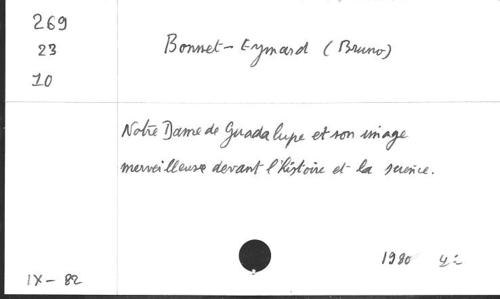 269
23
10
Bonnet-Eymard (Bruno)
Notre Dame de Guadalupe et son image
merveilleuse devant l'histoire et la science.
1980
IX-82